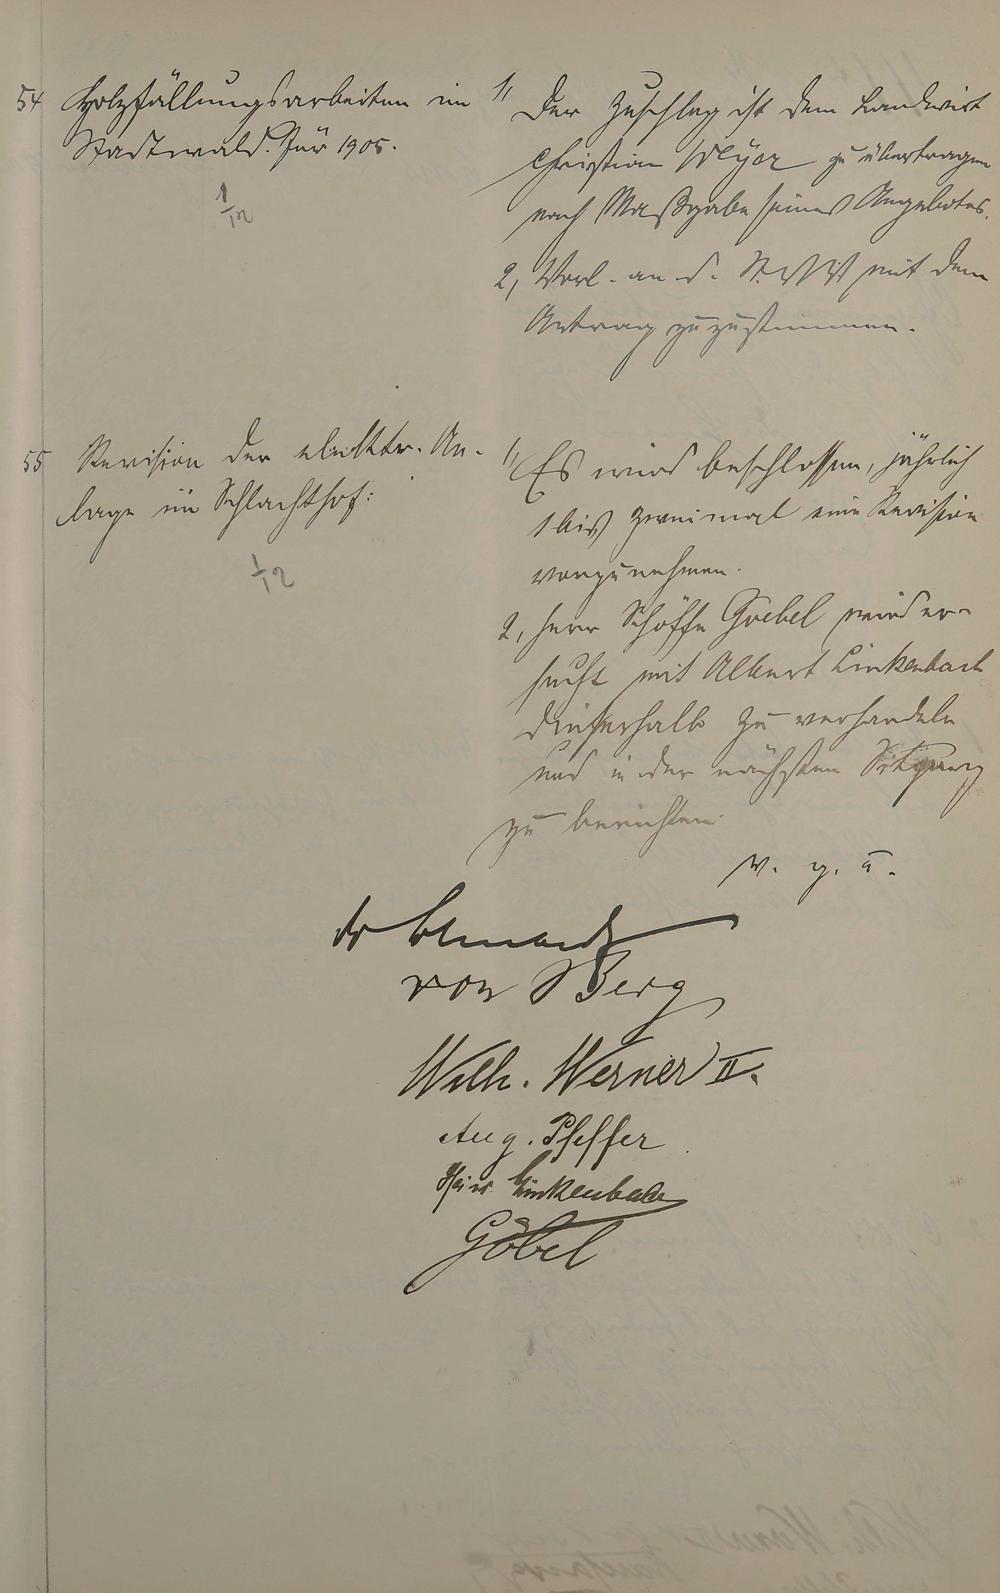 54 Holzfällungsarbeiten im
Stadtwald. Für 1905.
1/12
1, Der Zuschlag ist dem Landwirt
Christian Meyer zu übertragen
nach Maßgabe seines Angebotes.
2, Vorl. an d. St. V. V. mit dem
Antrag zuzustimmen.
55 Revision der elektr. An-
lage im Schlachthof:
1/12
1, Es wird beschlossen, jährlich
1 bis zweimal eine Revision
vorzunehmen.
2, Herr Schöffe Goebel wird er-
sucht mit Albert Linkenbach
dieserhalb zu verhandeln
und in der nächsten Sitzung
zu berichten.
v. g. u.
von Berg
Wilh. Werner II.
Aug. Pfeffer
Heinr. Linkenbach
Göbel